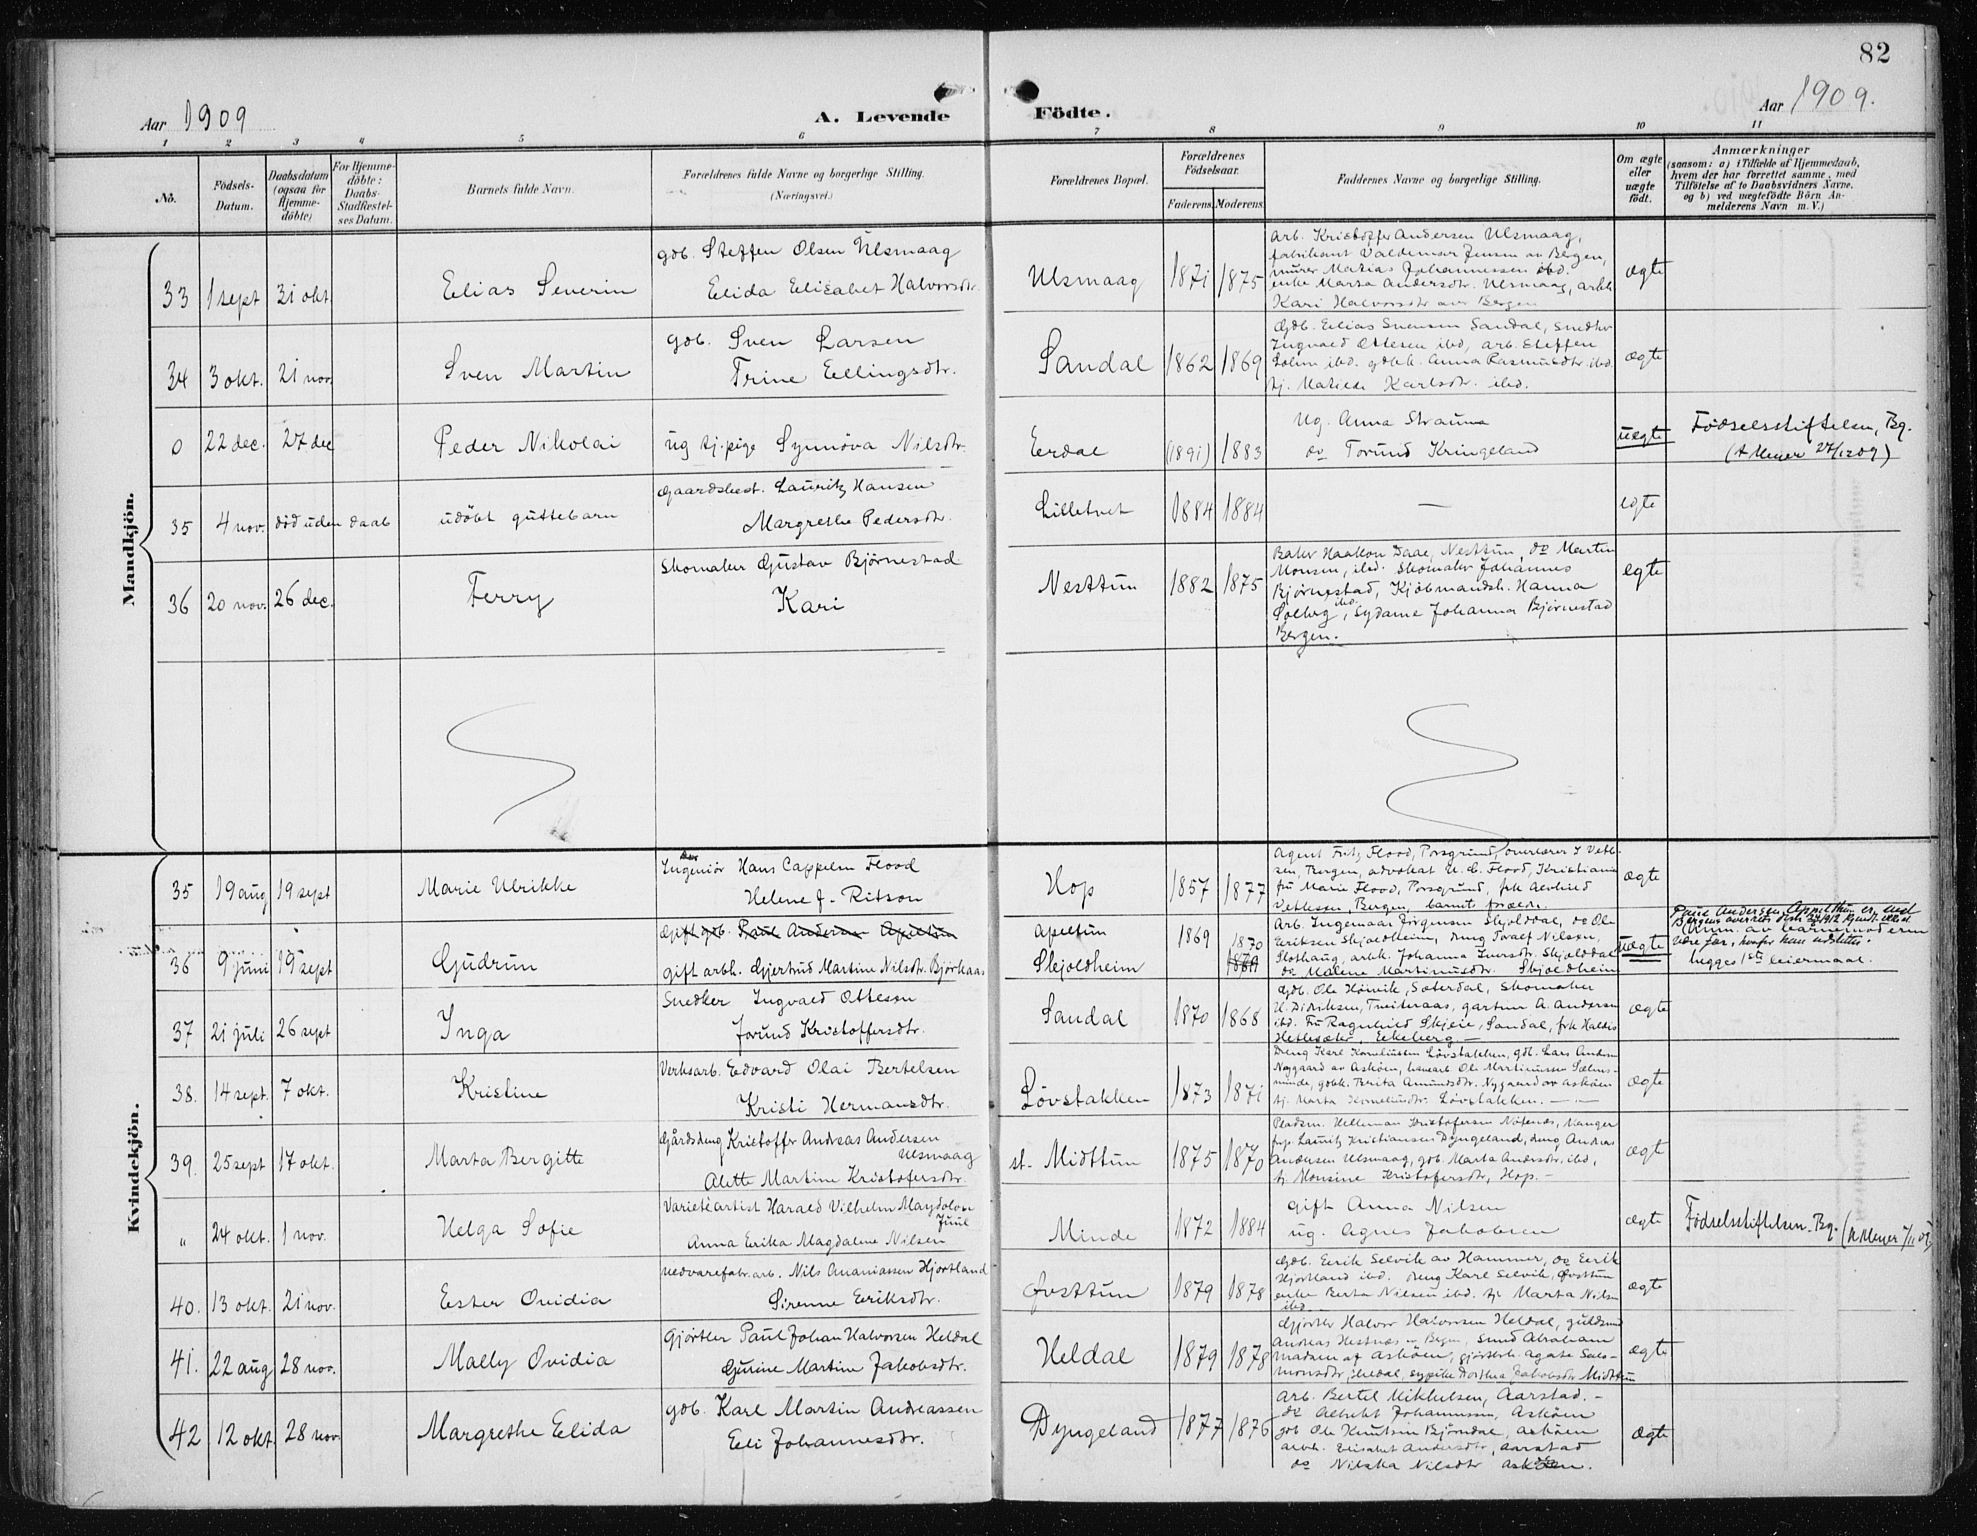 82
Aar 1909
A. Levende
Födte.
Aar 1909.
1 2 3 4 5 6 7 8 9 10 11
No.
Födsels-
Datum.
Daabsdatum
(ogsaa for
Hjemme-
döbte)
For Hjemme-
döbte:
Daabs-
Stadfæstel-
ses Datum.
Barnets fulde Navn.
Forældrenes fulde Navne og borgerlige Stilling.
(Næringsvei.)
Forældrenes Bopæl.
Forældrenes
Födselsaar.
Faderens Moderens
Faddernes Navne og borgerlige Stilling.
Om ægte
eller
uægte
født.
Anmærkninger
(saasom: a) i Tilfælde af Hjemmedaab,
hvem der har forrettet samme, med
Tilföielse af to Daabsvidners Navne,
og b) ved uægtefödte Börn An-
melderens Navn m. V.)
Mandkjön.
33 1 sept 31 okt. Elias Severin
gdb. Steffen Olsen Ulsmaag
Elida Elisabet Halvorsdtr.
Ulsmaag 1871 1875
arb. Kristoffer Andersen Ulsmaag,
fabrikant Valdemar Jensen av Bergen,
murer Matias Johannessen ibd.
enke Marta Andersdtr. Ulsmaag, arbk.
Kari Halvorsdtr av Bergen
ægte
34 3 okt. 21 nov. Sven Martin
gdb. Sven Larsen
Trine Ellingsdtr.
Sandal 1862 1869
Gdb. Elias Svensen Sandal, snedker
Ingvald Ottesen ibd, arb. Steffen
ibd. gdbk. Anna Rasmusdtr. ibd.
tj. Matilde Karlsdtr. ibd.
ægte
0 22 dec. 27 dec Peder Nikolai
ug tj. pige Synnöva Nilsdtr.
Eerdal (1891) 1883
Ug. Anna Straume
do Torund Kringeland
uegte
Födselsstiftelsen, Bg.
(A Meyer 27/12 09)
35 4 nov. död uden daab udöbt guttebarn
Gaardsbest. Lauritz Hansen
Margrethe Pedersdtr.
Lilletvet 1884 1884
—
egte
36 20 nov. 26 dec. Ferry
Skomaker Gustav Bjørnestad
Kari
Nesttun 1882 1875
Baker Haakon Daae, Nesttun, do Martin
Monsen, ibd. Skomaker Johannes
Bjørnestad, Kjöbmandsk. Hanna
Solberg ibd., Sydame Johanna Bjørnestad
Bergen.
egte
Kvindekjön.
35 19 aug 19 sept Marie Ulrikke
Ingeniør Hans Cappelen Flood
Helene f. Ritson
Hop 1857 1877
Agent Fritz Flood, Porsgrund, overlærer J Vetle-
sen, Bergen, advokat Flood, Kristiania
fru Marie Flood, Porsgrund, frk
Vetlesen, Bergen, barnets forældre.
ægte
36 9 juni 19 sept Gudrun
Gift gdb. Paul Andersen Apeltun
gift arbk. Gjertrud Martine Nilsdtr. Bjørkaas
Apeltun
Skjoldheim 1869 1870 1869
Arb. Ingemaar Jörgensen Skjolddal, do Ole
Eriksen Skjoldheim, dreng Toralf Nilsen,
Slothaug, arbk. Johanna Iversdtr. Skjolddal
do Malene Martinusdtr. Skjoldheim
uægte
Paul Andersen Appeltun er ved
Bergens overrets dom
av barnemoderen
være far, hvorfor han udslettes.
lægges 1ste leiermaal.
37 21 juli 26 sept Inga
Snedker Ingvald Ottesen
Jorund Kristoffersdtr.
Sandal 1870 1868
Gdb. Ole Høivik, Sæterdal, Skomaker
H. Diriksen, Tveiteraas, gartner A. Andersen
ibd. Fru Ragnhild Skjeie, Sandal, frk Haldis
Hetlesæter, Eikeberg —
ægte
38. 14 sept. 7 okt. Kristine
Verksarb. Edvard Olai Bertelsen
Kristi Hermansdtr.
Løvstakken 1873 1871
Dreng Karl Korneliussen Løvstakken, gdb. Lars Andersen
Nygaard av Askøen, Ole Martinussen Sælens-
minde, gdbk. Brita Amundsdtr. Nygaard av Askøen
tj. Marta Korneliusdtr. Løvstakken. — —
ægte
39. 25 sept 17 okt. Marta Bergitte
Gårdsdreng Kristoffer Andreas Andersen
Ulsmaag
Alette Martine Kristofersdtr.
st. Midttun 1875 1870
Pladsm. Helleman Kristofersen Nøtenes, Manger
Lauritz Kristiansen Dyngeland, dreng Andreas
Andersen Ulsmaag, gdb. Marta Andersdtr, ibd,
tj. Monsine Kristofersdtr, Hop. —
ægte
" 24 okt. 1 nov. Helga Sofie
Varietéartist Harald Vilhelm Magdalon
Juul
Anna Erika Magdalene Nilsen
Minde 1872 1884
gift Anna Nilsen
ug. Agnes Jakobsen
ægte
Fødselsstiftelsen Bg. (A Meyer 1/11 09)
40. 13 okt. 21 nov. Ester Ovidia
Uldvarefabr.arb. Nils Ananiassen Hjortland
Sirenne Eriksdtr.
Øvsttun 1879 1878
Gdb. Eirik Selvik av Hammer, do Eirik
Hjortland ibd. dreng Karl Selvik, Øvsttun
enke Berta Nilsen ibd. tj. Marta Nilsen
ibd.
ægte
41. 22 aug 28 nov. Mally Ovidia
Gjørtler Paul Johan Halvorsen Heldal
Gurine Martine Jakobsdtr.
Heldal 1879 1878
Gjørtler Halvor Halvorsen Heldal, guldsmed
Andreas Hestnes, Bergen, Smed Abraham
Madsen af Askøen, gjørtlerk. Agate Salo-
monsdtr, Heldal, sypike Dorthea Jakobsdtr Midttun
ægte
42 12 okt. 28 nov. Margrethe Elida
gdb. Karl Martin Andreassen
Eli Johannesdtr.
Dyngeland 1877 1876
arb. Bertel Mikkelsen, Aarstad. —
do Albrikt Johannessen, Askøen
gdb Ole Knutsen Bjørndal, Askøen
arbk. Elisabet Andersdtr, Aarstad
do Nilska Nilsdtr Askøen.
ægte